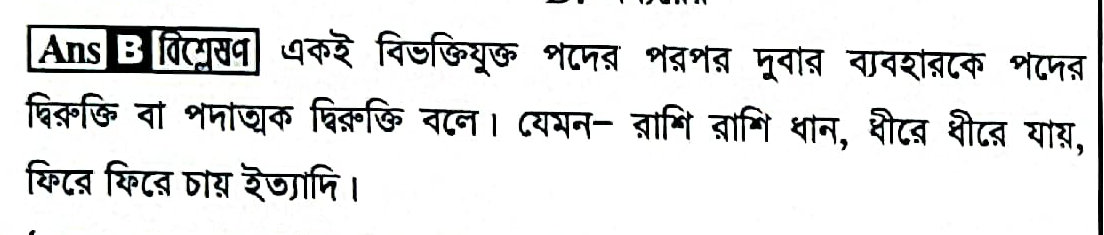 Ans B বিশ্লেষণ একই বিভক্তিযুক্ত পদের পরপর দুবার ব্যবহারকে পদের
দ্বিরুক্তি বা পদাত্মক দ্বিরুক্তি বলে। যেমন– রাশি রাশি ধান, ধীরে ধীরে যায়,
ফিরে ফিরে চায় ইত্যাদি।